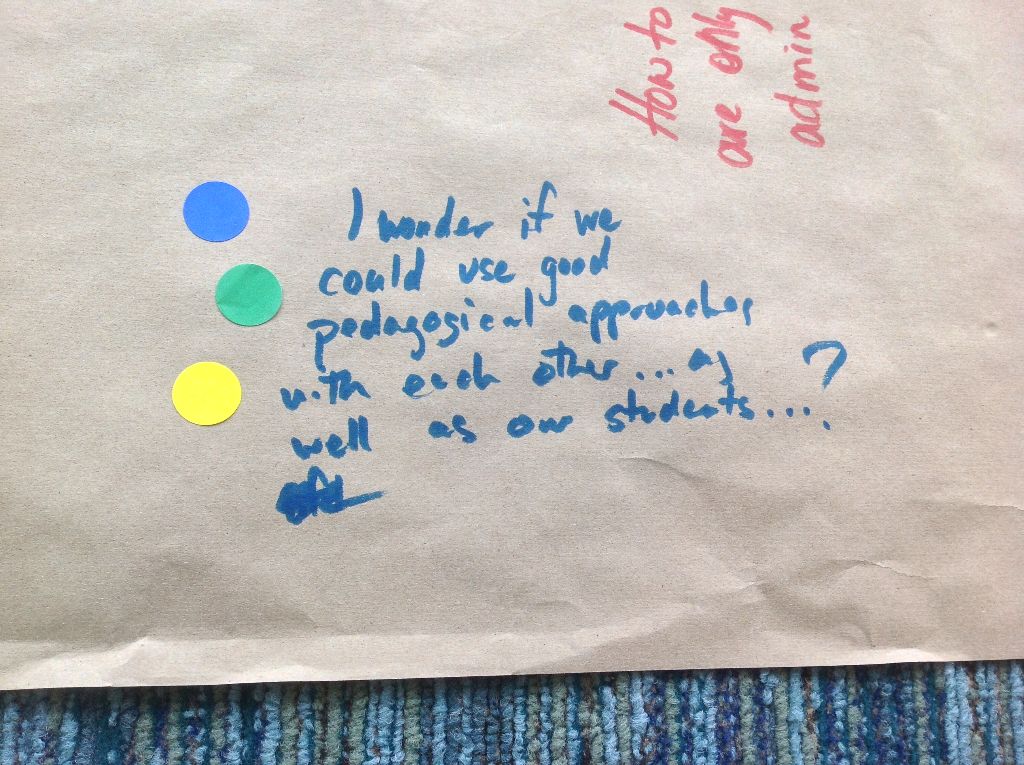 How to
are only
admin
I wonder if we
could use good
pedagogical approaches
with each other... as
well as our students...?